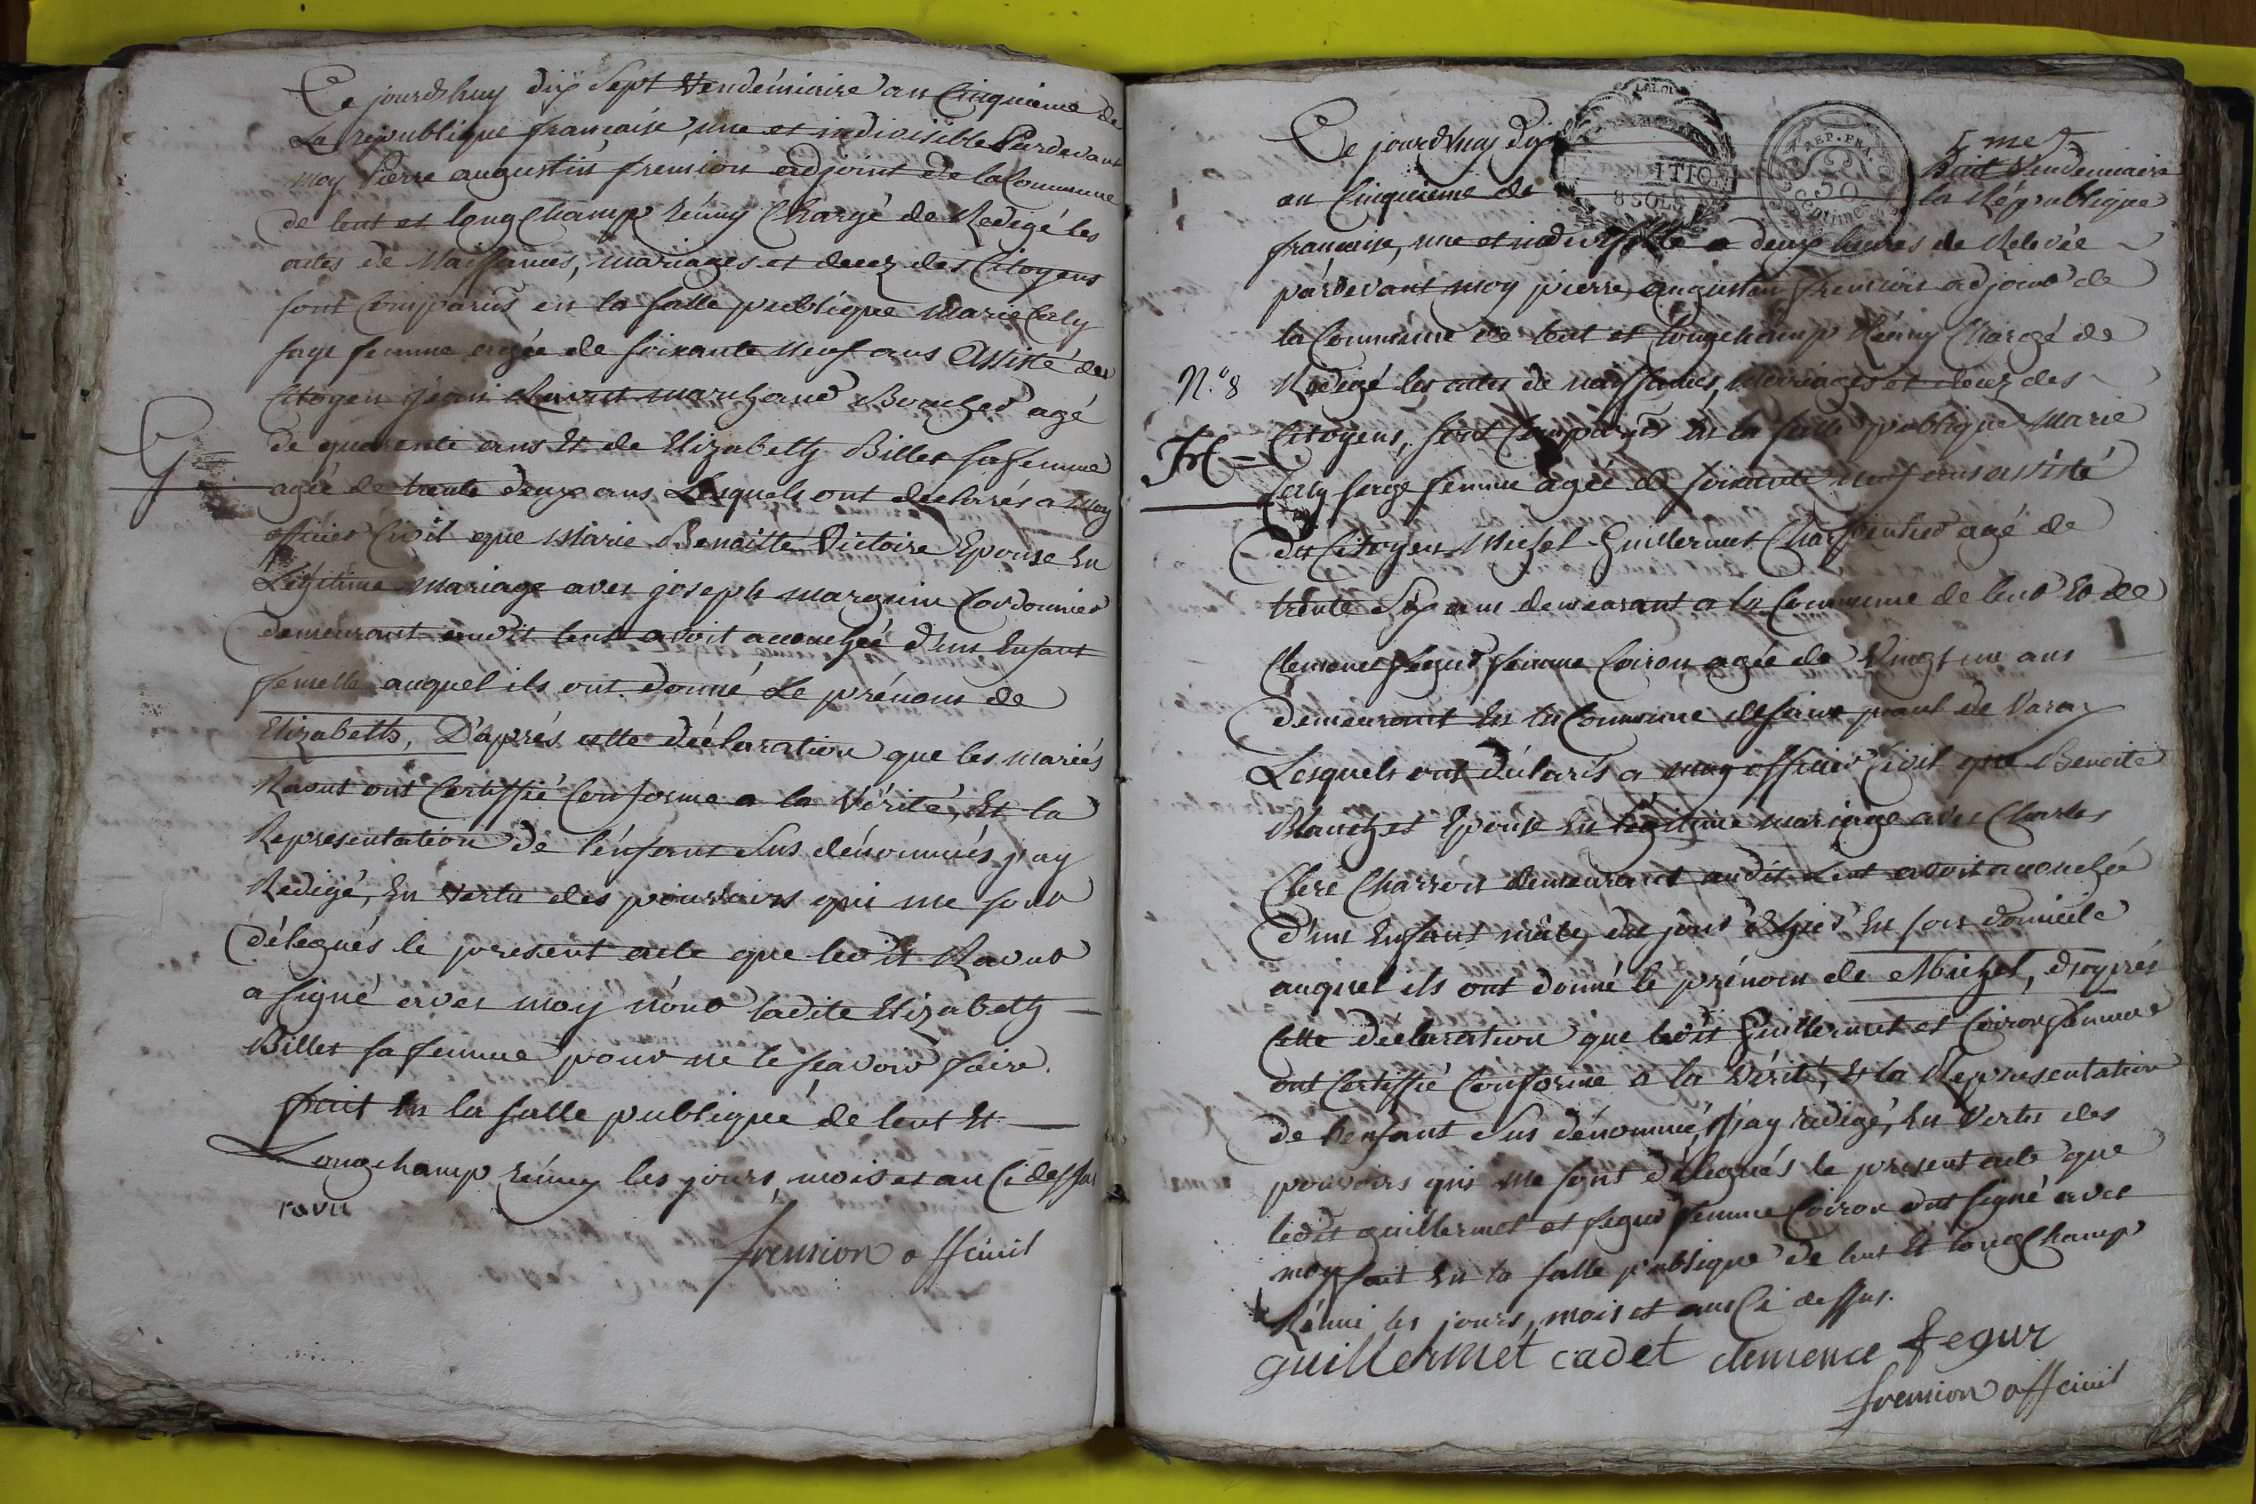 Ce jourdhuy dix Sept Vendémiaire an Cinquieme de
La république francaise, une et indivisible Pardevant
moy Pierre augustin fremion adjoint de la Commune
de lent et longchamp Réuny Chargé de Redigé les
actes de Naissances, mariages et decez des Citoyens
sont Comparus en la salle publique marie Caly
sage femme agée de soixante neuf ans Assisté du
Citoyen jean Ravut marchand Boucher agé
de quarente ans Et de Elizabeth Billet sa femme
agée de trente deux ans Lesquels ont declarés a moy
officier Civil que Marie Benoitte Victoire Epouse En
Légitime mariage avec joseph marguin Cordonnier
demeurant audit lent avoit accouchée d'un Enfant
femelle auquel ils ont donné Le prénom de
Elizabeth, D'après cette déclaration que les mariés
Ravut ont Certiffié Conforme a la Vérité, Et la
Représentation de l'énfant Sus dénommés j'ay
Redigé, En vertu des pouvoirs qui me sont
délegués le présent acte que ledit Ravut
a signé avec moy nond ladite Elizabeth
Billet sa femme pour ne le sçavoir faire.
fait En la salle publique de lent Et
Longchamp Réuny les jours, mois et an Ci dessus
ravu
fremion off civil
G
5me
Ce jourdhuy dix huit Vendémiaire
an Cinquieme de la République
française, une et indivisible a deux heures de Relevée
pardevant moy pierre augustin fremion adjoint de
la Commune de lent et longchamp Réuny Chargé de
N.º 8 Redigé les actes de naissances, mariages et decez des
H = Citoyens, sont Comparus En la salle publique Marie
Caly sage femme agée de soixante neuf ans assisté
du Citoyen Michel Guillermet Charpentier agé de
trente Six ans demeurant a la Commune de lent Et de
Clemence Segur femme Coiron agée de Vingt un ans
demeurant En la Commune de saint paul de Varax
Lesquels ont déclarés a moy officier Civil que Benoite
Blanchet Epouse En légitime mariage avec Charles
Clerc Charron demeurant audit Lent avoit accouchée
d'un Enfant mâle, du jour d'hier En son domicile
auquel ils ont donné le prénom de Michel, d'après
Cette déclaration que ledit Guillermet et Coiron femme
ont Certiffié Conforme a la Vérité, Et la Représentation
de l'enfant Sus dénommé, j'ay redigé, En Vertu des
pouvoirs qui me sont délegués le présent acte que
ledit guillermet et segur femme Coiron ont signé avec
moy fait En la salle publique de lent Et longchamp
Réuni les jours, mois et an Ci dessus.
guillermet cadet clemence segur
fremion off civil
ITION
8 SOLS
REP. FRA.
50
centimes